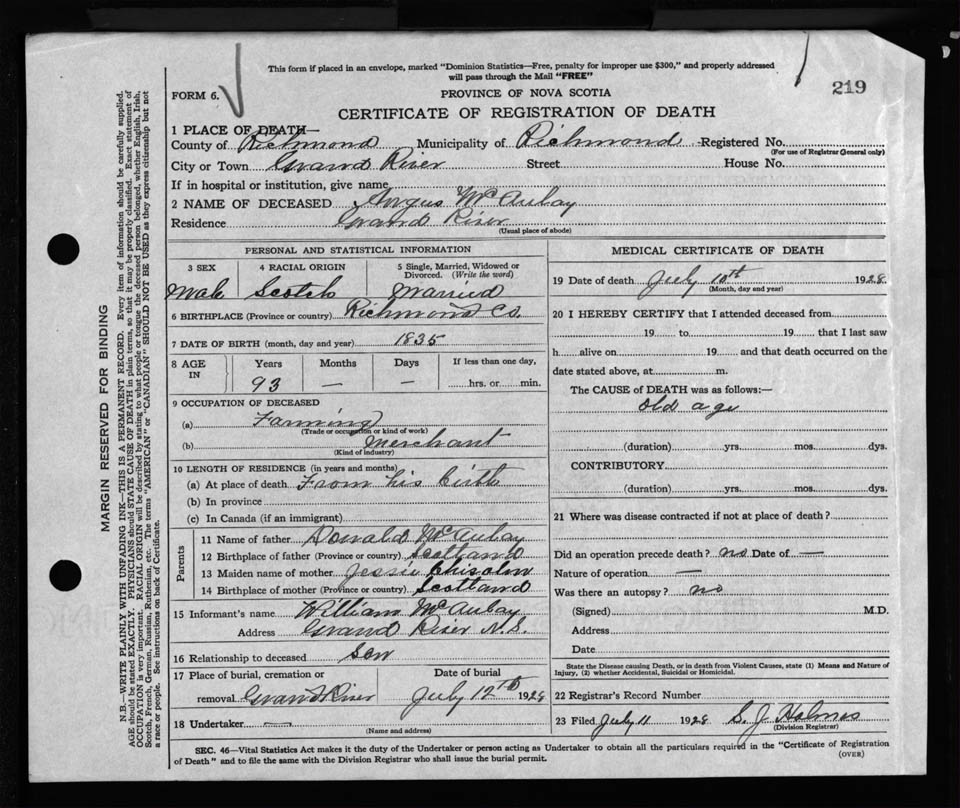 This form if placed in an envelope, marked "Dominion Statistics—Free, penalty for improper use $300," and properly addressed
will pass through the Mail "FREE"
219
FORM 6.
PROVINCE OF NOVA SCOTIA
CERTIFICATE OF REGISTRATION OF DEATH
1 PLACE OF DEATH—
County of Richmond Municipality of Richmond Registered No.
(For use of Registrar General only)
City or Town Grand River Street House No.
If in hospital or institution, give name
2 NAME OF DECEASED Angus McAulay
Residence Grand River
(Usual place of abode)
PERSONAL AND STATISTICAL INFORMATION
3 SEX 4 RACIAL ORIGIN 5 Single, Married, Widowed or
Divorced. (Write the word)
Male Scotch Married
6 BIRTHPLACE (Province or country) Richmond Co.
7 DATE OF BIRTH (month, day and year) 1835
8 AGE IN Years Months Days If less than one day,
93 — — hrs. or min.
9 OCCUPATION OF DECEASED
(a) Farming
(Trade or occupation or kind of work)
(b) Merchant
(Kind of industry)
10 LENGTH OF RESIDENCE (in years and months)
(a) At place of death From his birth
(b) In province
(c) In Canada (if an immigrant)
Parents
11 Name of father Donald McAulay
12 Birthplace of father (Province or country) Scotland
13 Maiden name of mother Jessie Chisolm
14 Birthplace of mother (Province or country) Scotland
15 Informant's name William McAulay
Address Grand River N.S.
16 Relationship to deceased Son
17 Place of burial, cremation or Date of burial
removal Grand River July 12th 1928
18 Undertaker —
(Name and address)
MEDICAL CERTIFICATE OF DEATH
19 Date of death July 10th 1928
(Month, day and year)
20 I HEREBY CERTIFY that I attended deceased from
19 to 19 that I last saw
h alive on 19 and that death occurred on the
date stated above, at m.
The CAUSE of DEATH was as follows:—
old age
(duration) yrs. mos. dys.
CONTRIBUTORY
(duration) yrs. mos. dys.
21 Where was disease contracted if not at place of death?
Did an operation precede death? no Date of —
Nature of operation —
Was there an autopsy? no
(Signed) M.D.
Address
Date
State the Disease causing Death, or in death from Violent Causes, state (1) Means and Nature of
Injury, (2) whether Accidental, Suicidal or Homicidal.
22 Registrar's Record Number
23 Filed July 11 1928 S. J. Holmes
(Division Registrar)
SEC. 46—Vital Statistics Act makes it the duty of the Undertaker or person acting as Undertaker to obtain all the particulars required in the "Certificate of Registration
of Death" and to file the same with the Division Registrar who shall issue the burial permit.
(OVER)
MARGIN RESERVED FOR BINDING
N.B.—WRITE PLAINLY, WITH UNFADING INK—THIS IS A PERMANENT RECORD. Every item of information should be carefully supplied.
AGE should be stated EXACTLY. PHYSICIANS should STATE CAUSE OF DEATH in plain terms, so that it may be properly classified. Exact statement of
OCCUPATION is very important. RACIAL ORIGIN will be described by stating to what people or tongue the deceased person belonged, whether English, Irish,
Scotch, French, German, Russian, Ruthenian, etc. The terms "AMERICAN" or "CANADIAN" SHOULD NOT BE USED as they express citizenship but not
a race or people. See instructions on back of Certificate.